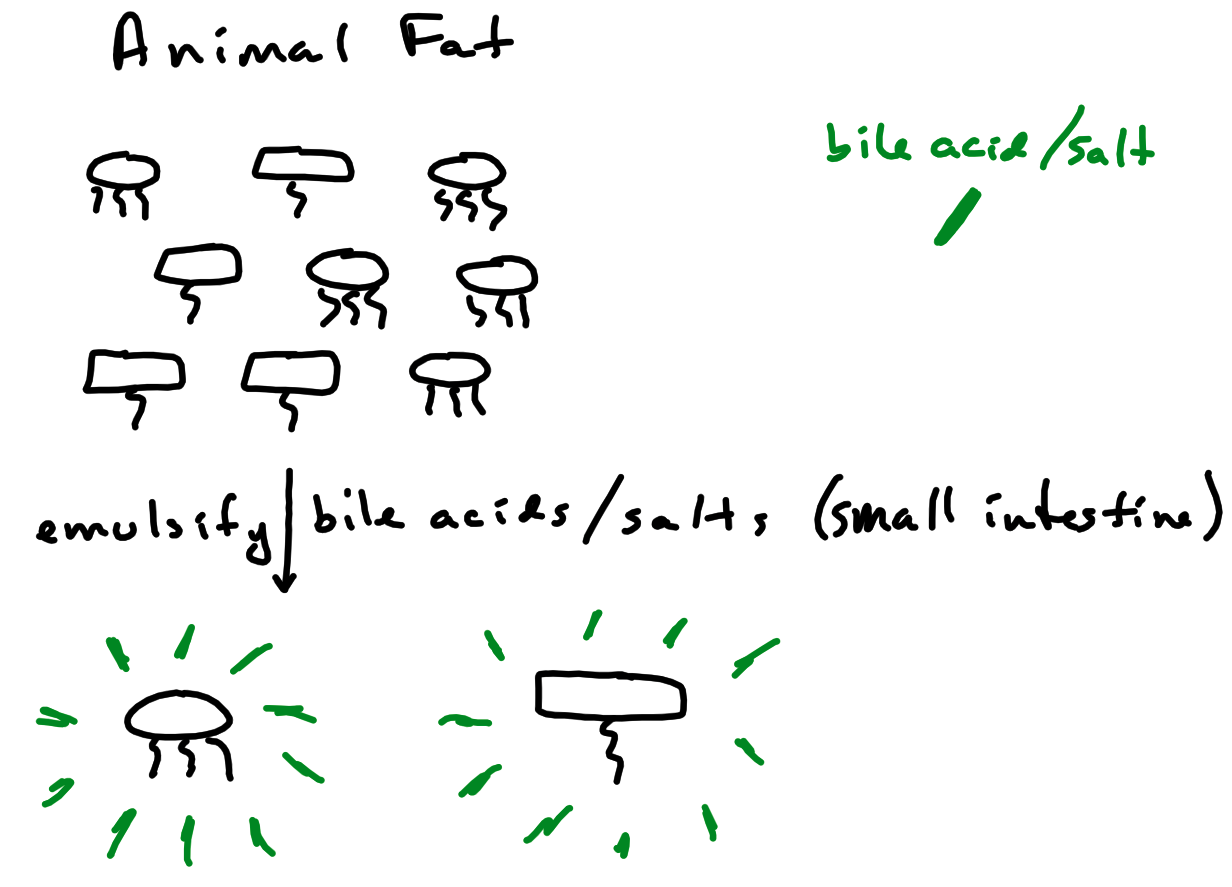 Animal Fat
bile acid/salt
emulsify bile acids/salts (small intestine)